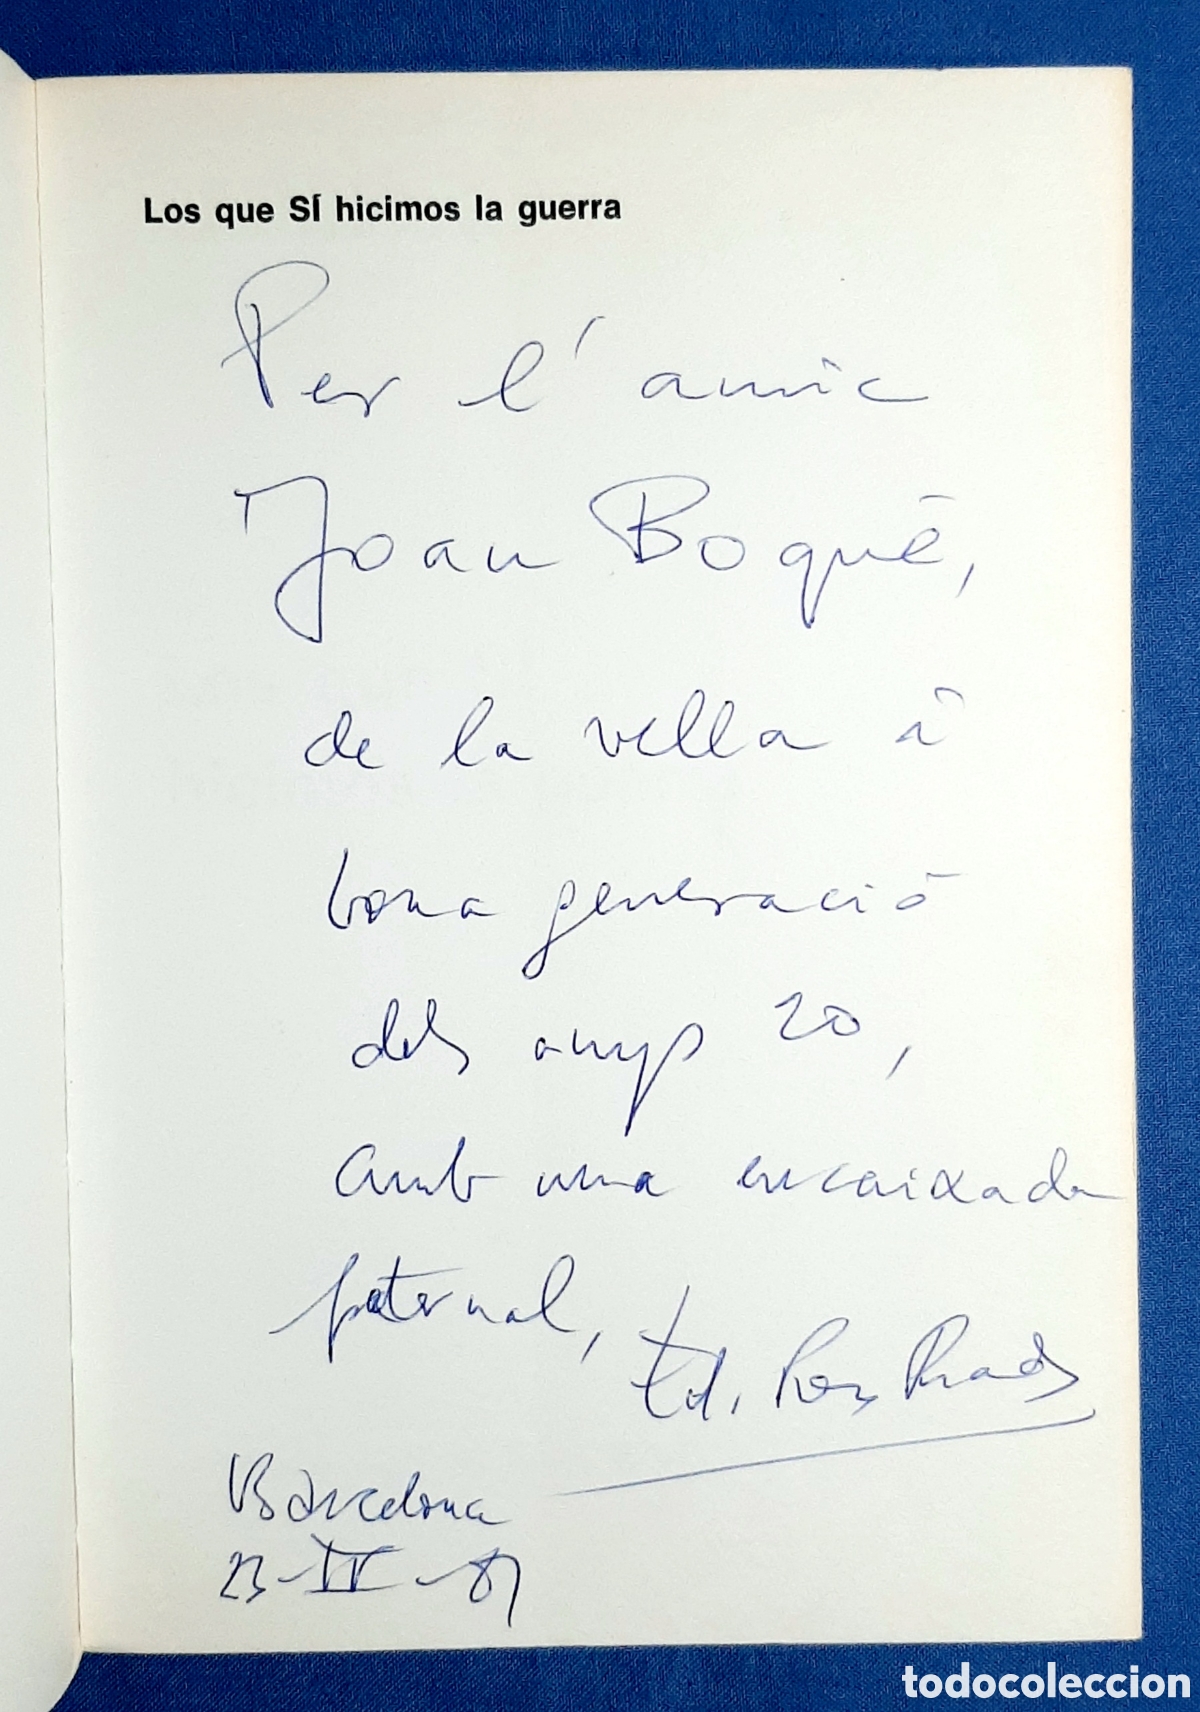 Los que SÍ hicimos la guerra
Per l'amic
Joan Boqué,
de la vella i
bona generació
dels anys 20,
amb una encaixada
paternal, Ed. Pons Prades
Barcelona
23-IV-87
todocoleccion